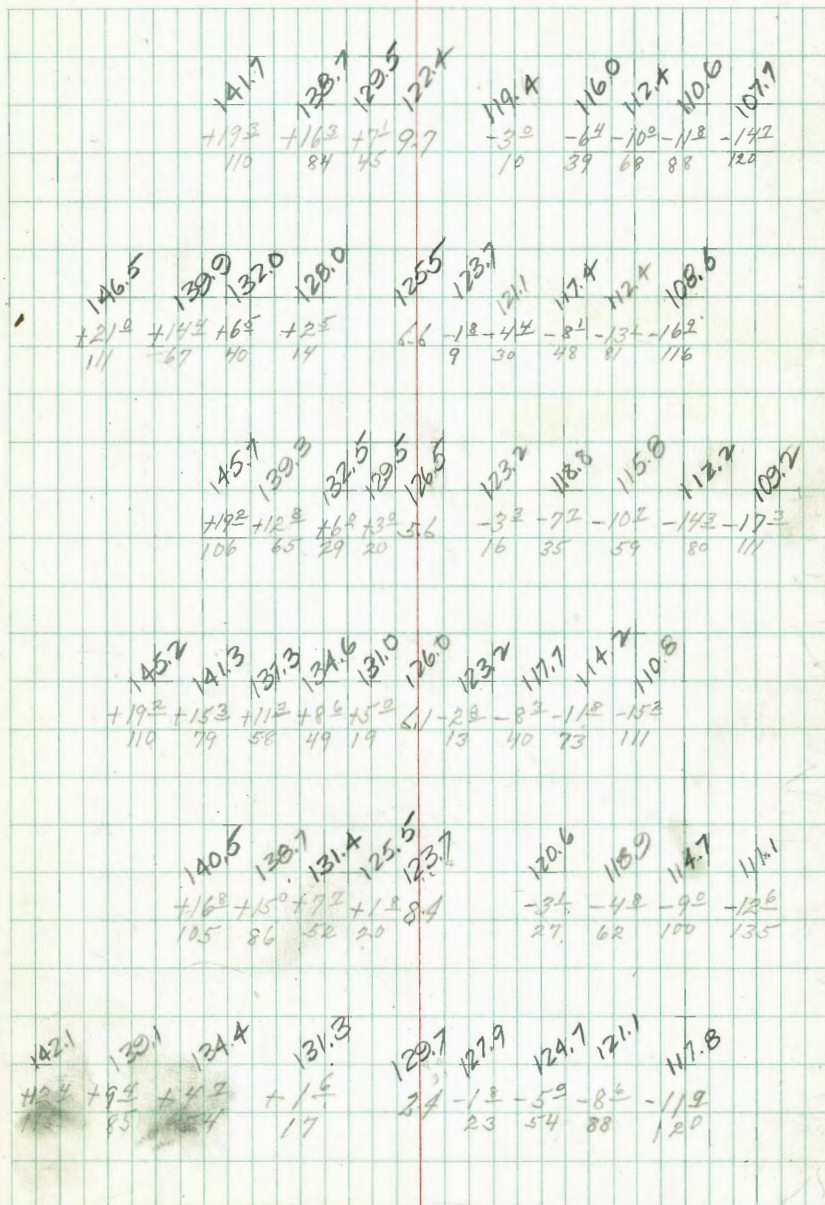 141.7 138.7 129.5 122.4 119.4 116.0 112.4 110.6 107.7
+19³ +16³ +7¹ 9.7 -3⁰ -6⁴ -10⁰ -11⁸ -14⁷
110 84 45 10 39 68 88 120
146.5 139.9 132.0 128.0 125.5 123.7 121.1 117.4 112.4 108.6
+21⁰ +14⁴ +6⁵ +2⁵ 6.6 -1⁸ -4⁴ -8¹ -13¹ -16⁹
111 67 40 14 9 30 48 81 116
145.7 139.3 132.5 129.5 126.5 123.2 118.8 115.8 112.2 109.2
+19² +12⁸ +6⁰ +3⁰ 5.6 -3³ -7⁷ -10⁷ -14³ -17³
106 65 29 20 16 35 59 80 111
145.2 141.3 137.3 134.6 131.0 126.0 123.2 117.7 114.2 110.8
+19² +15³ +11³ +8⁶ +5⁰ 6.1 -2⁸ -8³ -11⁸ -15²
110 79 58 49 19 13 40 73 111
140.5 138.7 131.4 125.5 123.7 120.6 118.9 114.7 111.1
+16⁸ +15⁰ +7⁷ +1⁸ 8.4 -3¹ -4⁸ -9⁰ -12⁶
105 86 52 20 27 62 100 135
142.1 139.1 134.4 131.3 129.7 127.9 124.7 121.1 117.8
+12⁴ +9⁴ +4⁷ +1⁶ 2.4 -1⁸ -5⁰ -8⁶ -11⁹
85 17 23 54 88 120